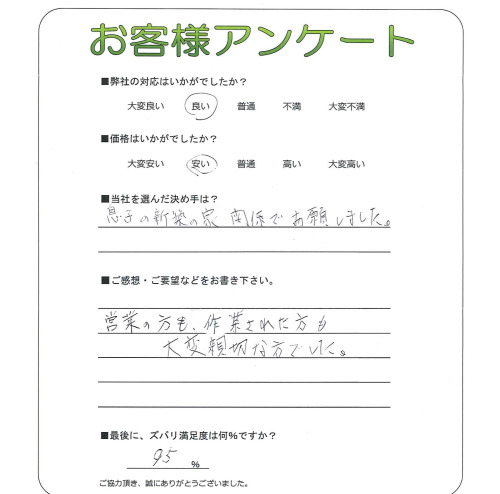 お客様アンケート
■弊社の対応はいかがでしたか?
大変良い 良い 普通 不満 大変不満
■価格はいかがでしたか?
大変安い 安い 普通 高い 大変高い
■当社を選んだ決め手は?
息子の新築の家 関係でお願いしました。
■ご感想・ご要望などをお書き下さい。
営業の方も、作業された方も
大変親切な方でした。
■最後に、ズバリ満足度は何%ですか?
95 %
ご協力頂き、誠にありがとうございました。